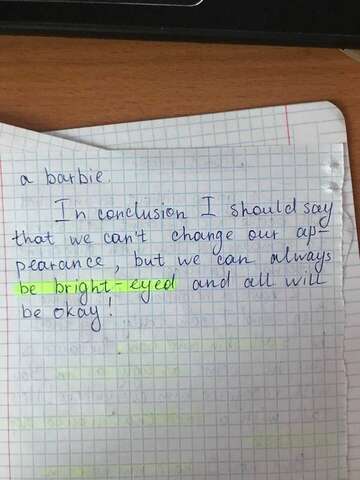 a barbie.
In conclusion I should say
that we can't change our ap=
pearance, but we can always
be bright-eyed and all will
be okay!